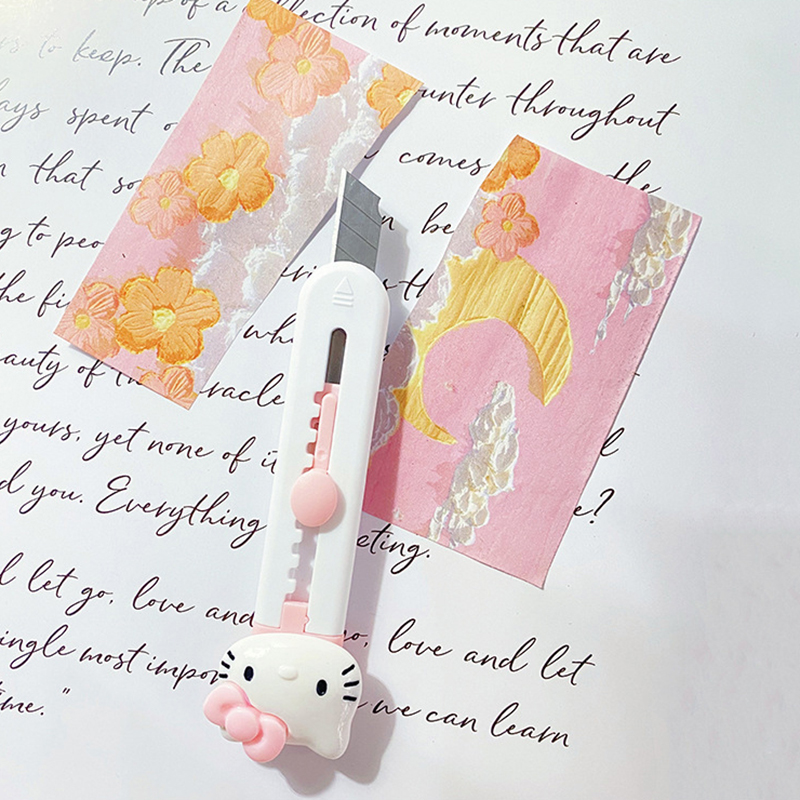 of a collection of moments that are
to keep. The unter throughout
ays spent comes the
that so be
g to peo
the fi
auty of racle
yours, yet none of it
d you. Everything e?
eting.
let go, love and go, love and let
ingle most impor
me." we can learn